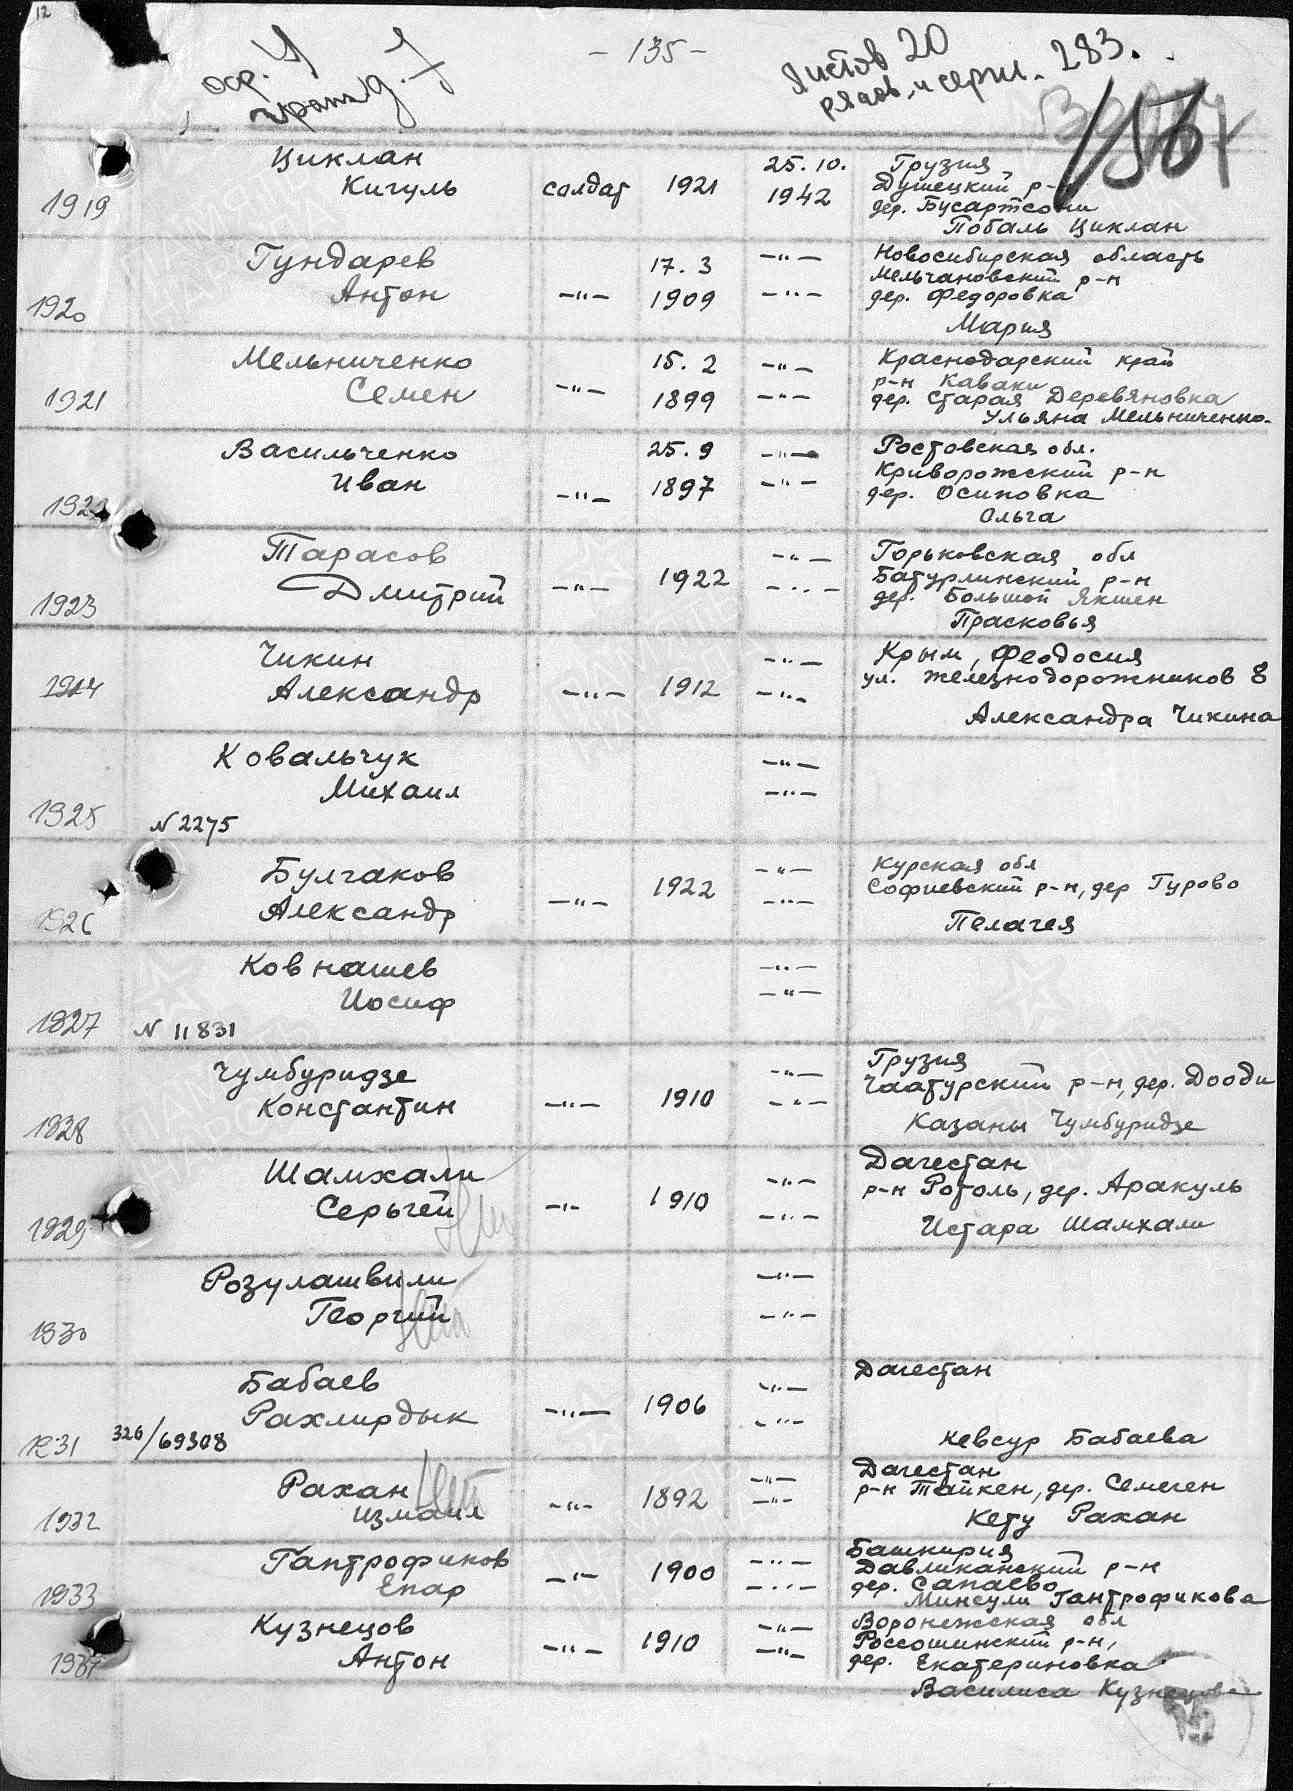 12
– 135 –
Листов 20
рядов. и серж. – 283.
Циклан 25.10. Грузия
Кигуль солдат 1921 1942 Душецкий р-н
1919 дер. Бусартсони
Побаль Циклан
Гундарев 17.3 –"– Новосибирская область
Антон –"– 1909 –"– Мельчановский р-н
1920 дер. Федоровка
Мария
Мельниченко 15.2 –"– Краснодарский край
Семен –"– 1899 –"– р-н Каваки
1921 дер. Старая Деревяновка
Ульяна Мельниченко.
Васильченко 25.9 –"– Ростовская обл.
Иван –"– 1897 –"– Криворожский р-н
1922 дер. Осиповка
Ольга
Тарасов –"– Горьковская обл
Дмитрий –"– 1922 –"– Батурлинский р-н
1923 дер. Большой Якшен
Прасковья
Чикин –"– Крым, Феодосия
1924 Александр –"– 1912 –"– ул. Железнодорожников 8
Александра Чикина
Ковальчук –"–
Михаил –"–
1925 N 2275
Булгаков 1922 –"– Курская обл
Александр –"– –"– Софиевский р-н, дер Гурово
1926 Пелагея
Ковнашев –"–
Иосиф –"–
1927 N 11831
Чумбуридзе –"– Грузия
Константин –"– 1910 –"– Чаатурский р-н, дер. Дооди
1928 Казаны Чумбуридзе
Шамхали –"– Дагестан
Серьгей –"– 1910 –"– р-н Ротоль, дер. Аракуль
1929 Истара Шамхали
Розулашвили –"–
Георгий –"–
1930
Бабаев –"– Дагестан
Рахлирдык –"– 1906 –"–
1931 326/69308 Кевсур Бабаева
Рахан –"– Дагестан
Измаил –"– 1892 –"– р-н Тайкен, дер. Семеген
1932 Кету Рахан
Гантрофиков –"– Башкирия
Епар –"– 1900 –"– Давликанский р-н
1933 дер. Сапаево
Минсули Гантрофикова
Кузнецов –"– Воронежская обл
Антон –"– 1910 –"– Россошинский р-н,
1934 дер. Екатериновка
Василиса Кузнецова